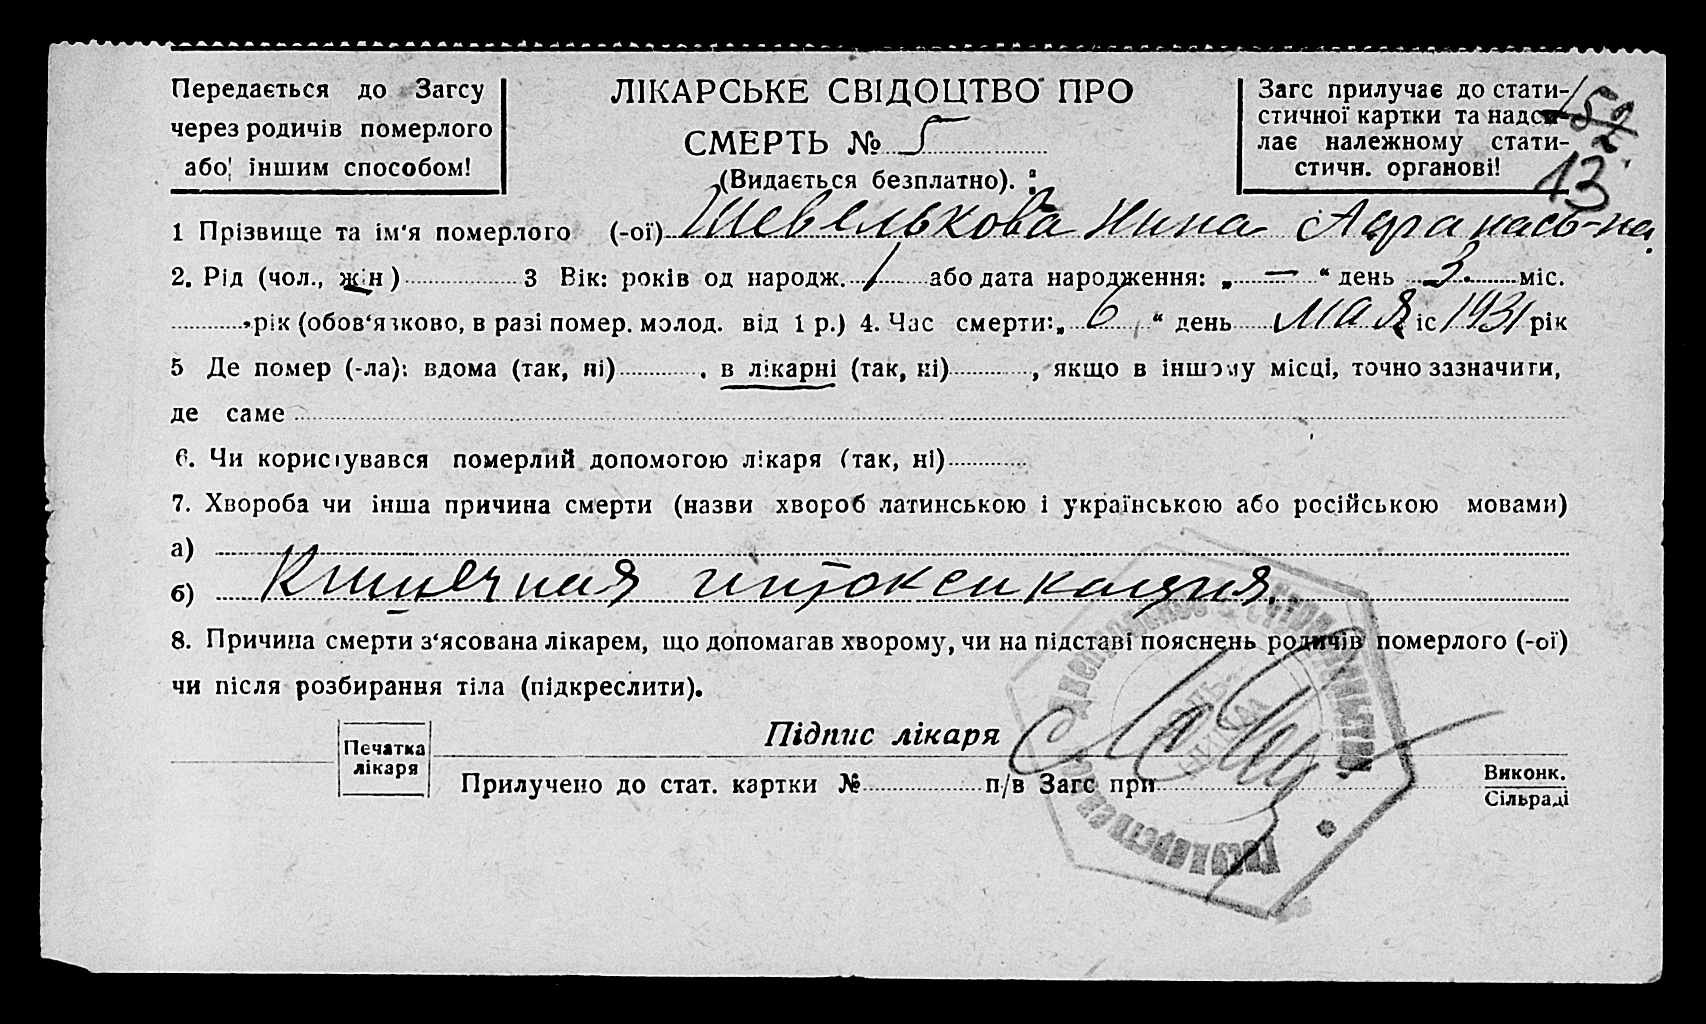 Передається до Загсу
через родичів померлого
або іншим способом!
ЛІКАРСЬКЕ СВІДОЦТВО ПРО
СМЕРТЬ № 5
(Видається безплатно).
Загс прилучає до стати-
стичної картки та надси-
лає належному стати-
стичн. органові!
13
1 Прізвище та ім'я померлого (-ої) Шевелькова Нина Афанась-на
2. Рід (чол., жін) 3 Вік: років од народж. 1 або дата народження: „ — “ день 3. міс.
рік (обов'язково, в разі помер. молод. від 1 р.) 4. Час смерти: „ 6 “ день мая міс 1931 рік
5 Де помер (-ла): вдома (так, ні) , в лікарні (так, ні) , якщо в іншому місці, точно зазначити,
де саме
6. Чи користувався померлий допомогою лікаря (так, ні)
7. Хвороба чи інша причина смерти (назви хвороб латинською і українською або російською мовами)
а)
б) Кишечная интоксикация.
8. Причина смерти з'ясована лікарем, що допомагав хворому, чи на підставі пояснень родичів померлого (-ої)
чи після розбирання тіла (підкреслити).
Печатка
лікаря
Підпис лікаря
Прилучено до стат. картки № п/в Загс при
Виконк.
Сільраді